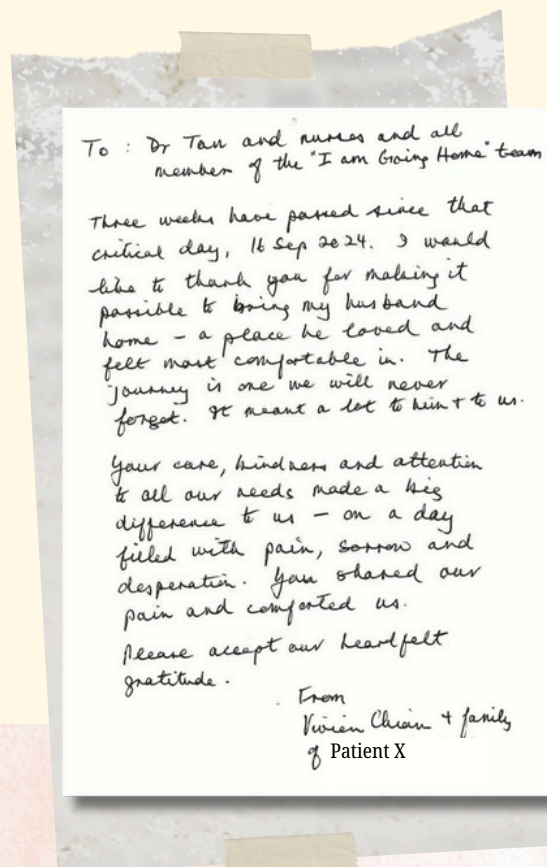 To : Dr Tan and nurses and all
member of the "I am Going Home" team
Three weeks have passed since that
critical day, 16 Sep 2024. I would
like to thank you for making it
possible to bring my husband
home – a place he loved and
felt most comfortable in. The
journey is one we will never
forget. It meant a lot to him + to us.
Your care, kindness and attention
to all our needs made a big
difference to us – on a day
filled with pain, sorrow and
desperation. You shared our
pain and comforted us.
Please accept our heartfelt
gratitude.
From
Vivien Chian + family
of Patient X